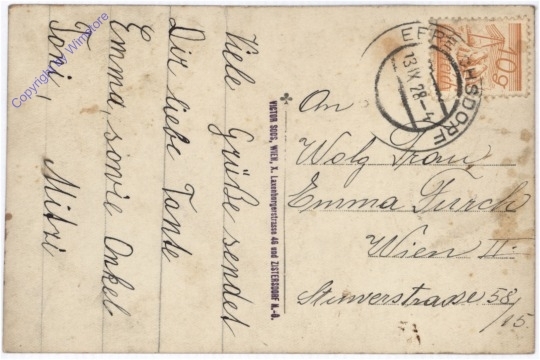 Viele Grüße sendet
Dir liebe Tante
Emma, sowie Onkel
Toni,
Mitzi
VICTOR SOGG, WIEN, X. Laxenburgerstrasse 46 und ZISTERSDORF N.-Ö.
13 IX 28
An
Wolg. Frau
Emma
Wien II
58/15.
Copyright by Winstore